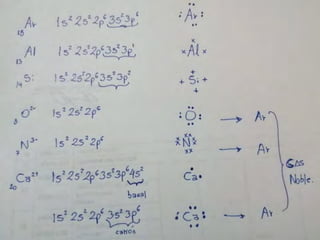 ₁₈Ar 1s² 2s² 2p⁶ 3s² 3p⁶ Ar
₁₃Al 1s² 2s² 2p⁶ 3s² 3p¹ Al
₁₄Si 1s² 2s² 2p⁶ 3s² 3p² Si
₈O²⁻ 1s² 2s² 2p⁶ O → Ar
₇N³⁻ 1s² 2s² 2p⁶ N → Ar
Gas
Noble.
₂₀Ca²⁺ 1s² 2s² 2p⁶ 3s² 3p⁶ 4s² Ca
basal
1s² 2s² 2p⁶ 3s² 3p⁶ Ca → Ar
cation